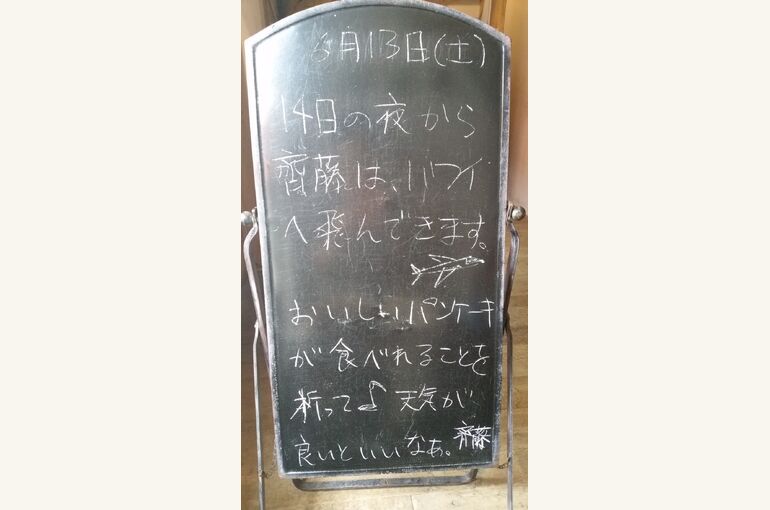 8月13日(土)
14日の夜から
齊藤は、ハワイ
へ飛んできます。
おいしいパンケーキ
が食べれることを
祈って♪ 天気が
良いといいなぁ。齊藤